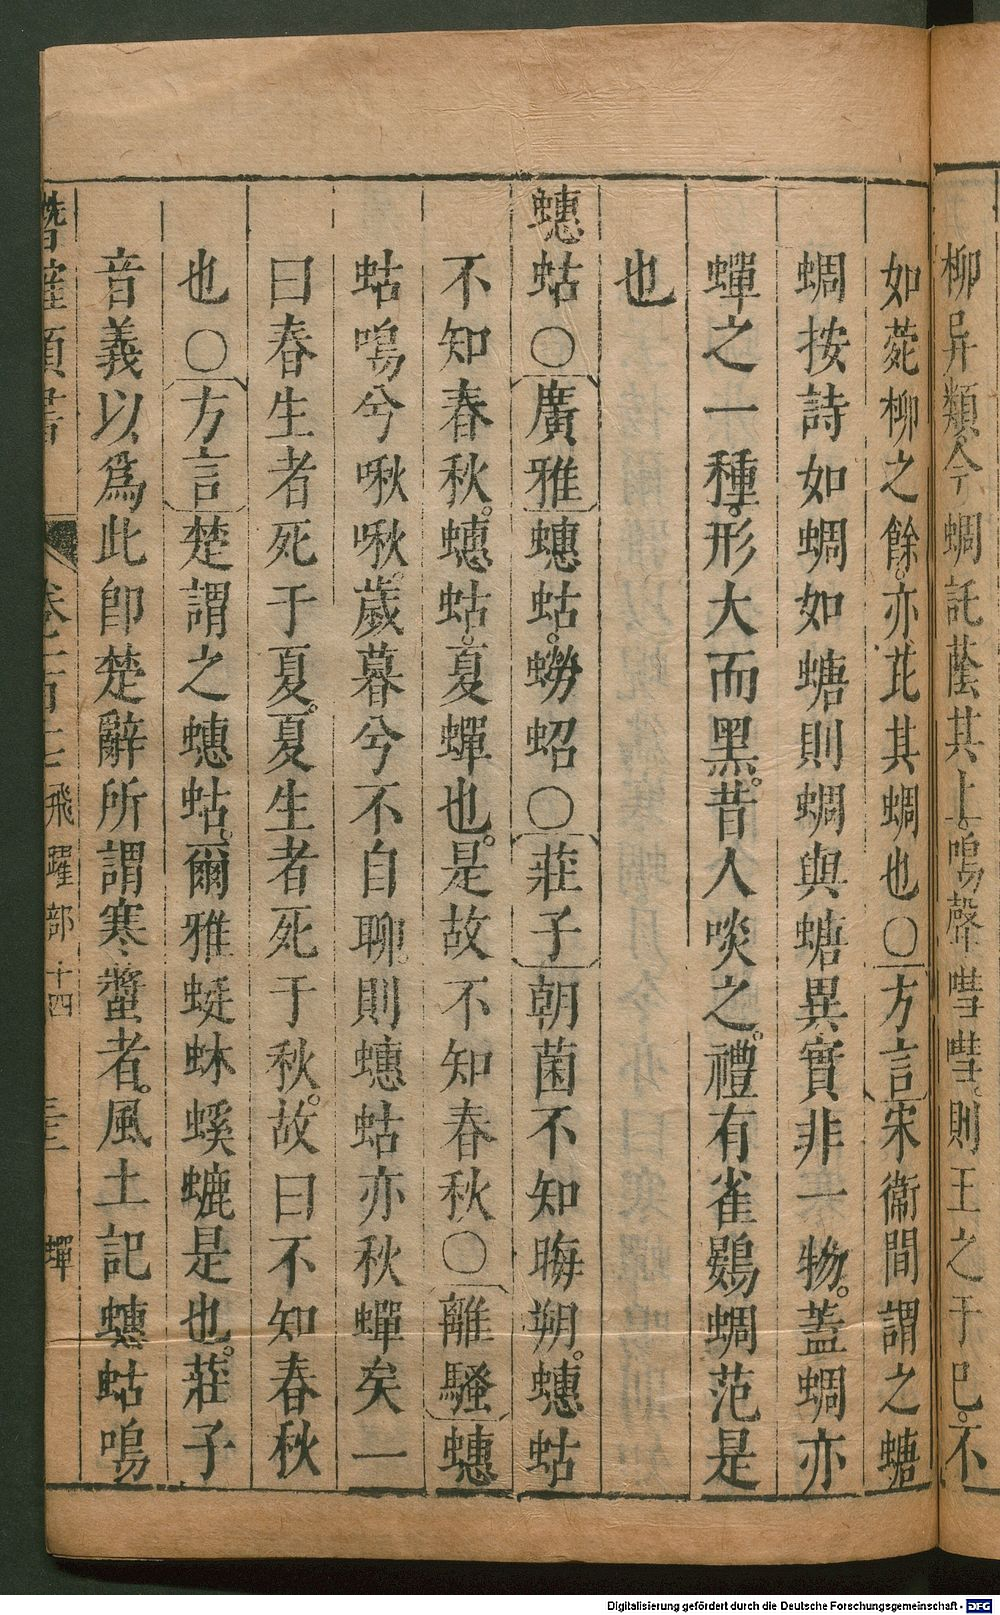 柳异類今蜩託蔭其上。鳴聲嘒嘒。則王之于己。不
如菀柳之餘。亦芘其蜩也○方言宋衞間謂之螗
蜩按詩如蜩如螗則蜩與螗異實非一物。蓋蜩亦
蟬之一種。形大而黑。昔人啖之。禮有雀鷃蜩范是
也
蟪蛄○廣雅蟪蛄。蟧蛁○莊子朝菌不知晦朔。蟪蛄
不知春秋。蟪蛄。夏蟬也。是故不知春秋○離騷蟪
蛄鳴兮啾啾。歲暮兮不自聊。則蟪蛄亦秋蟬矣一
曰春生者死于夏。夏生者死于秋。故曰不知春秋
也○方言楚謂之蟪蛄。爾雅蜓蚞螇螰是也。莊子
音義以爲此卽楚辭所謂寒螿者。風土記蟪蛄鳴
潛確類書
卷一百十七 飛躍部 十四 三十一 蟬
Digitalisierung gefördert durch die Deutsche Forschungsgemeinschaft - DFG